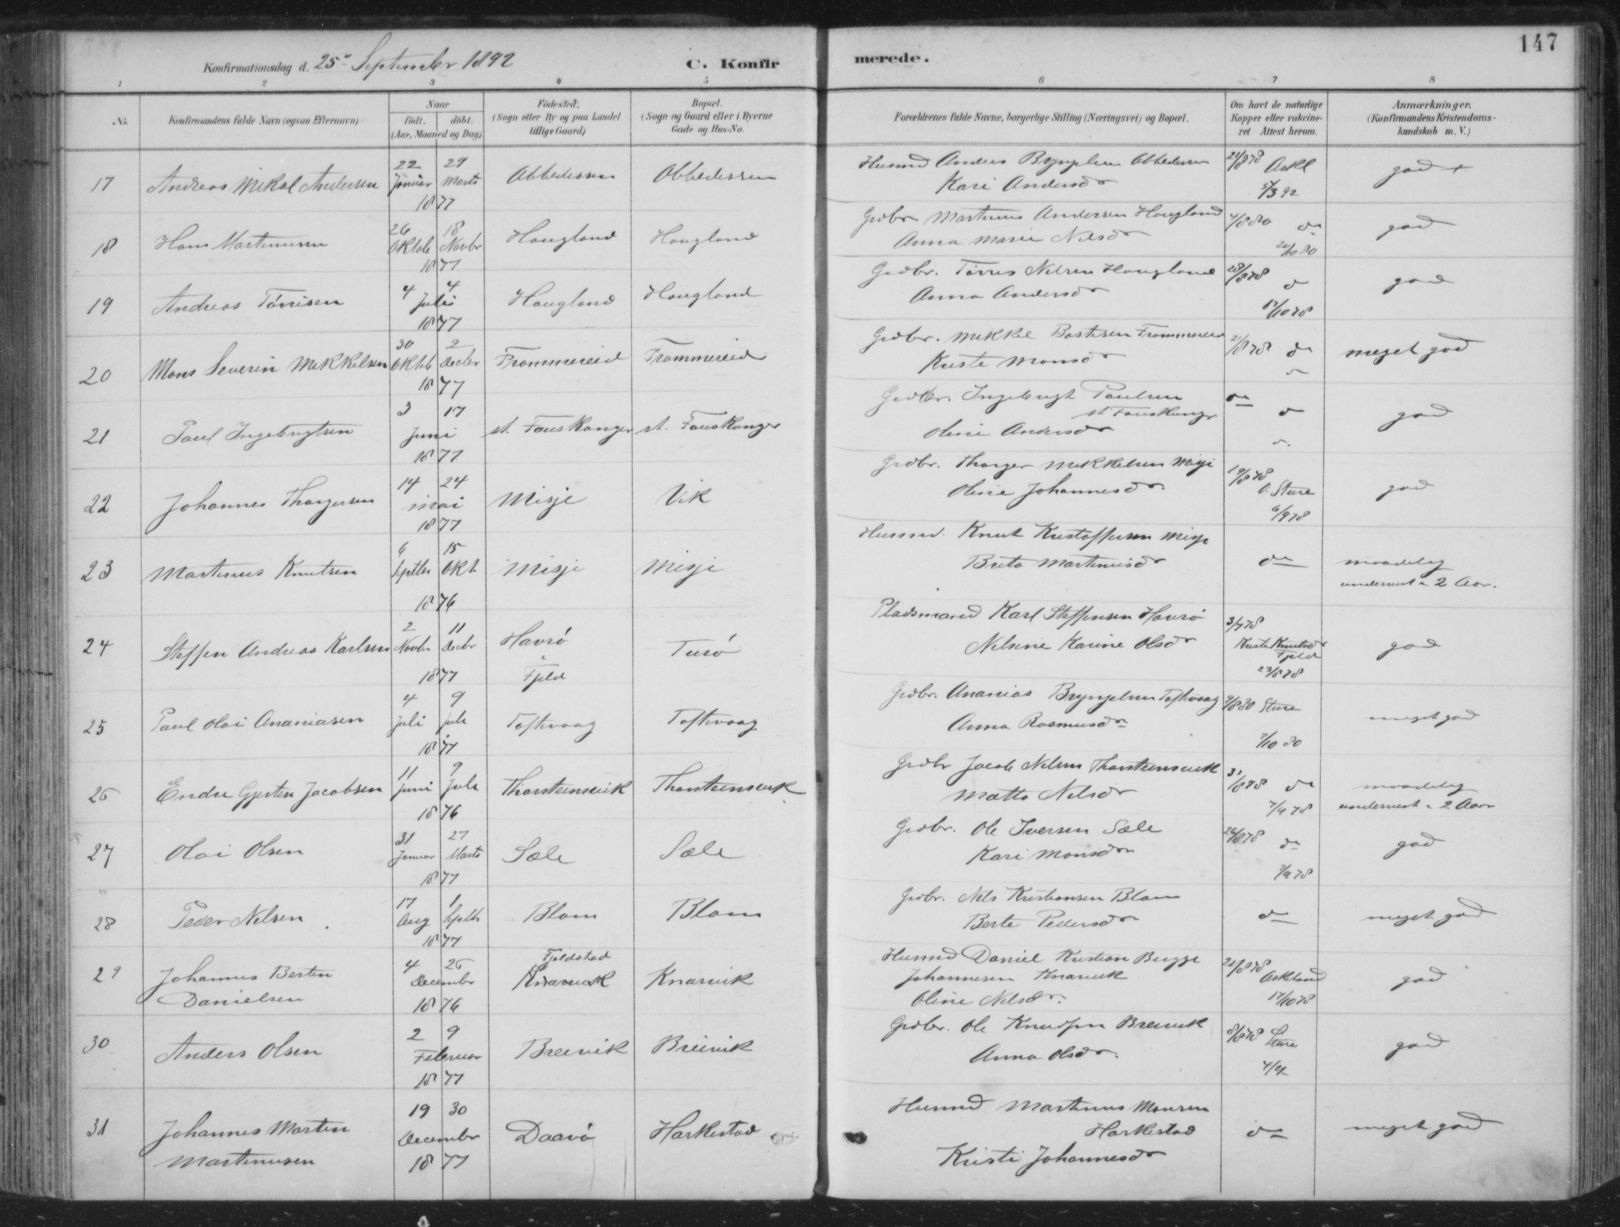 147
Konfirmationsdag d. 25de September 1892 C. Konfir merede.
1 2 3 4 5 6 7 8
No. Konfirmandens fulde Navn (ogsaa Efternavn) Naar født. døbt. (Aar, Maaned og Dag) Fødested. (Sogn eller By og paa Landet tillige Gaard) Bopæl. (Sogn og Gaard eller i Byerne Gade og Hus-No. Forældrenes fulde Navne, borgerlige Stilling (Næringsvei) og Bopæl. Om havt de naturlige Kopper eller vakcineret. Attest herom. Anmærkninger. (Konfirmandens Kristendomskundskab m. V.)
17 Andreas Mikal Andersen 22 Januar 29 Marts 1877 Abbedissen Abbedissen Husmd Anders Brynjelsen Abbedissen
Kari Andersdr god +
18 Hans Martinusen 26 Oktob 18 Novbr 1877 Hougland Hougland Grdbr. Martinus Andersen Hougland
Anna Marie Nilsdr 20/10 80 god
19 Andreas Tørrisen 4 4 Juli 1877 Hougland Hougland Grdbr. Tørris Nilsen Hougland
Anna Andersdr god
20 Mons Severin Mikkelsen 30 Oktob 2 Decbr 1877 Frommereid Frommereid Grdbr. Mikkel Bastesen Frommereid
Kirste Monsdr meget god
21 Paul Ingebrigtsen 3 17 Juni 1877 st. Fauskanger st. Fauskanger Grdbr. Ingebrigt Paulsen
st Fauskanger
Oline Andersdr god
22 Johannes Thorgersen 14 24 mai 1877 Misje Vik Grdbr. Thorger Mikkelsen Misje
Oline Johannesdr Sture 6/9 78 god
23 Martinus Knutsen 6 Septbr 15 Okt 1876 Misje Misje Husmd. Knut Kristoffersen Misje
Brita Martinusdr do maadelig
undervist i 2 Aar.
24 Steffen Andreas Karlsen 2 Novbr 11 Decbr 1877 Havrö i Fjeld Turö Pladsmand Karl Steffensen Havrö
Nilsine Karine Olsdr Fjeld god
25 Paul Olai Ananiasen 4 Juli 9 Juli 1877 Toftevaag Toftevaag Grdbr. Ananias Brynjelsen Toftevaag
Anna Rasmusdr Sture 7/10 80 meget god
26 Endre Gjertin Jacobsen 11 Juni 9 Juli 1876 Thorsteinsvik Thorsteinsvik Grdbr Jacob Nilsen Thorsteinsvik
Matta Nilsdr 31/8 78 do 7/9 78 maadelig
undervist i 2 Aar
27 Olai Olsen 31 Januar 27 Marts 1877 Sæle Sæle Grdbr. Ole Iversen Sæle
Kari Monsdr do 7/9 78 god
28 Peder Nilsen 17 Aug 1 Septb 1877 Blom Blom Grdbr. Nils Kristiansen Blom
Berte Pedersdr do meget god
29 Johannes Berten
Danielsen 4 26 December 1876 Fjeldstad Knarvik Knarvik Husmd Daniel Kristian Brygge
Johannesen Knarvik
Oline Nilsdr. Askeland 17/10 78 god
30 Anders Olsen 2 9 Februar 1877 Breivik Breivik Grdbr. Ole Knudsen Breivik
Anna Olsdr. Sture god
31 Johannes Martin
Martinusen 19 30 December 1877 Daavö Harkestad Husmd Martinus Monsen
Harkestad
Kristi Johannesdr do meget god